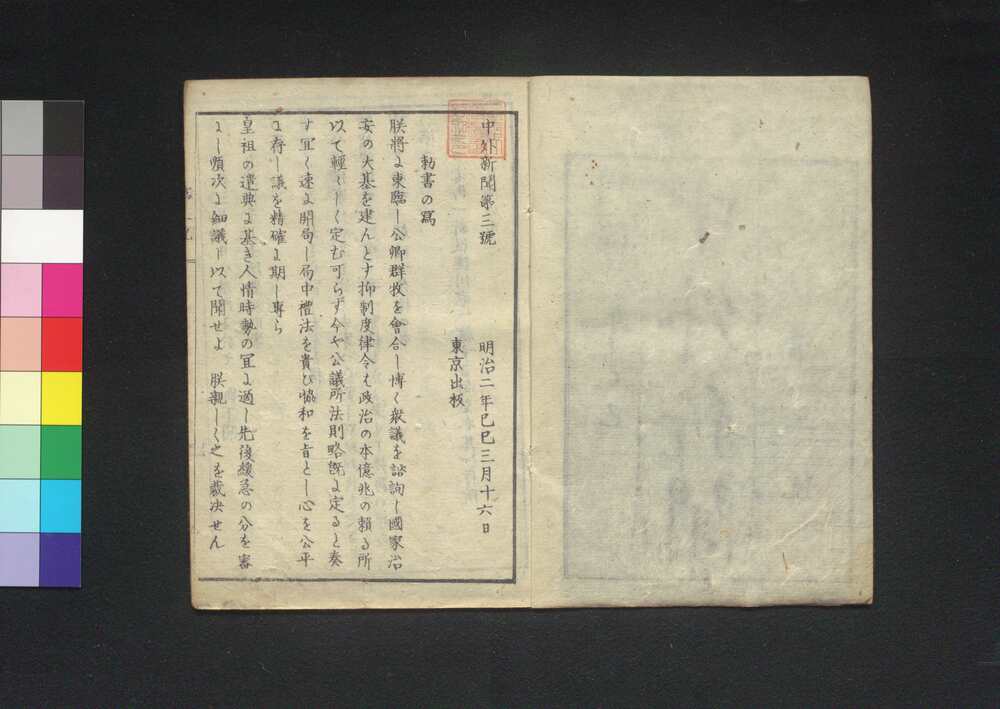 中外新聞第三號　明治二年己巳三月十六日
東京出板
勅書の寫
朕將よ東臨し公卿群牧を會合し博く衆議を諮詢し國家治
安の大基を建んとす抑制度律令は政治の本億兆の賴る所
以て輕〱しく定む可らず今や公議所法則略既よ定ると奏
す冝く速よ開局し局中禮法を貴び協和を旨とし心を公平
よ存し議を精確よ期し專ら
皇祖の遺典よ基き人情時勢の冝よ適し先後緩急の分を審
よし順次よ細議し以て聞せよ　朕親しく之を裁决せん